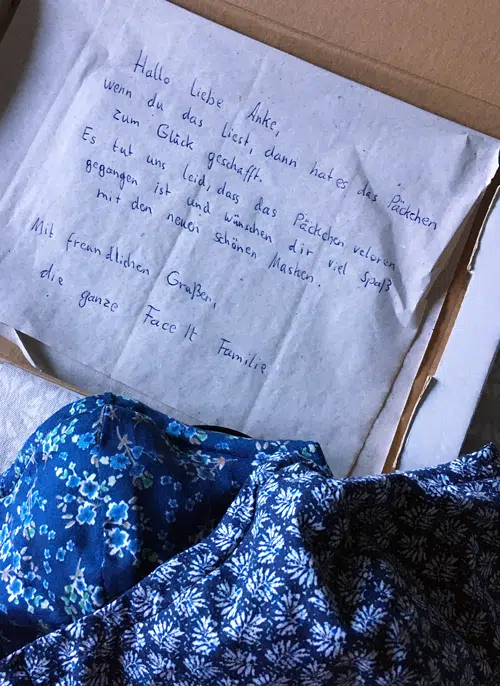 Hallo Liebe Anke,
wenn du das Liest, dann hat es das Päckchen
zum Glück geschafft.
Es tut uns leid, dass das Päckchen veloren
gegangen ist und wünschen dir viel Spaß
mit den neuen schönen Masken.
Mit freundlichen Graßen,
die ganze Face It Familie